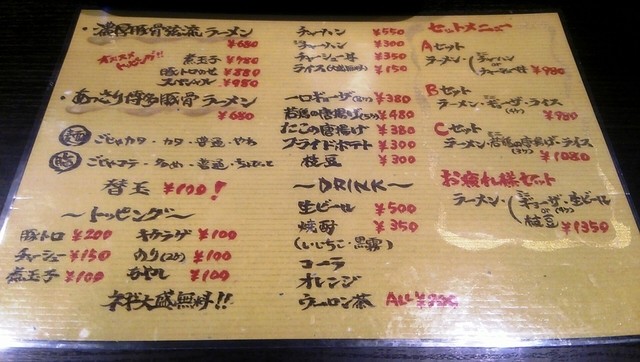 ・濃厚豚骨弦流ラーメン
¥680
煮玉子 ¥780
豚トロのせ ¥880
スペシャル ¥980
・あっさり博多豚骨ラーメン
¥680
麺 ごじゃカタ・カタ・普通・やわ
ごじゃコテ・多め・普通・ちょびっと
替玉 ¥100!
〜トッピング〜
豚トロ ¥200 キクラゲ ¥100
チャーシュー ¥150 のり(2枚) ¥100
煮玉子 ¥100 もやし ¥100
ネギ大盛無料!!
チャーハン ¥550
¥300
チャーシュー丼 ¥350
ライス ¥150
一口ギョーザ ¥380
若鶏の唐揚げ ¥480
たこの唐揚げ ¥380
フライドポテト ¥300
枝豆 ¥300
〜DRINK〜
生ビール ¥500
焼酎 ¥350
(いいちこ・黒霧)
コーラ
オレンジ
ウーロン茶 ALL
セットメニュー
Aセット
ラーメン・チャーハン or チャーシュー丼 ¥980
Bセット
ラーメン・ギョーザ・ライス
¥980
Cセット
ラーメン・若鶏の唐揚げ・ライス
¥1080
お疲れ様セット
ラーメン・ギョーザ or 枝豆・生ビール
¥1350